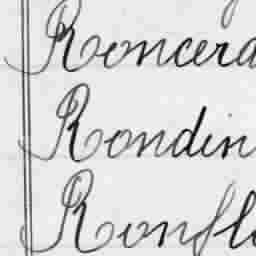 Roncera
Rondin
Ronfl